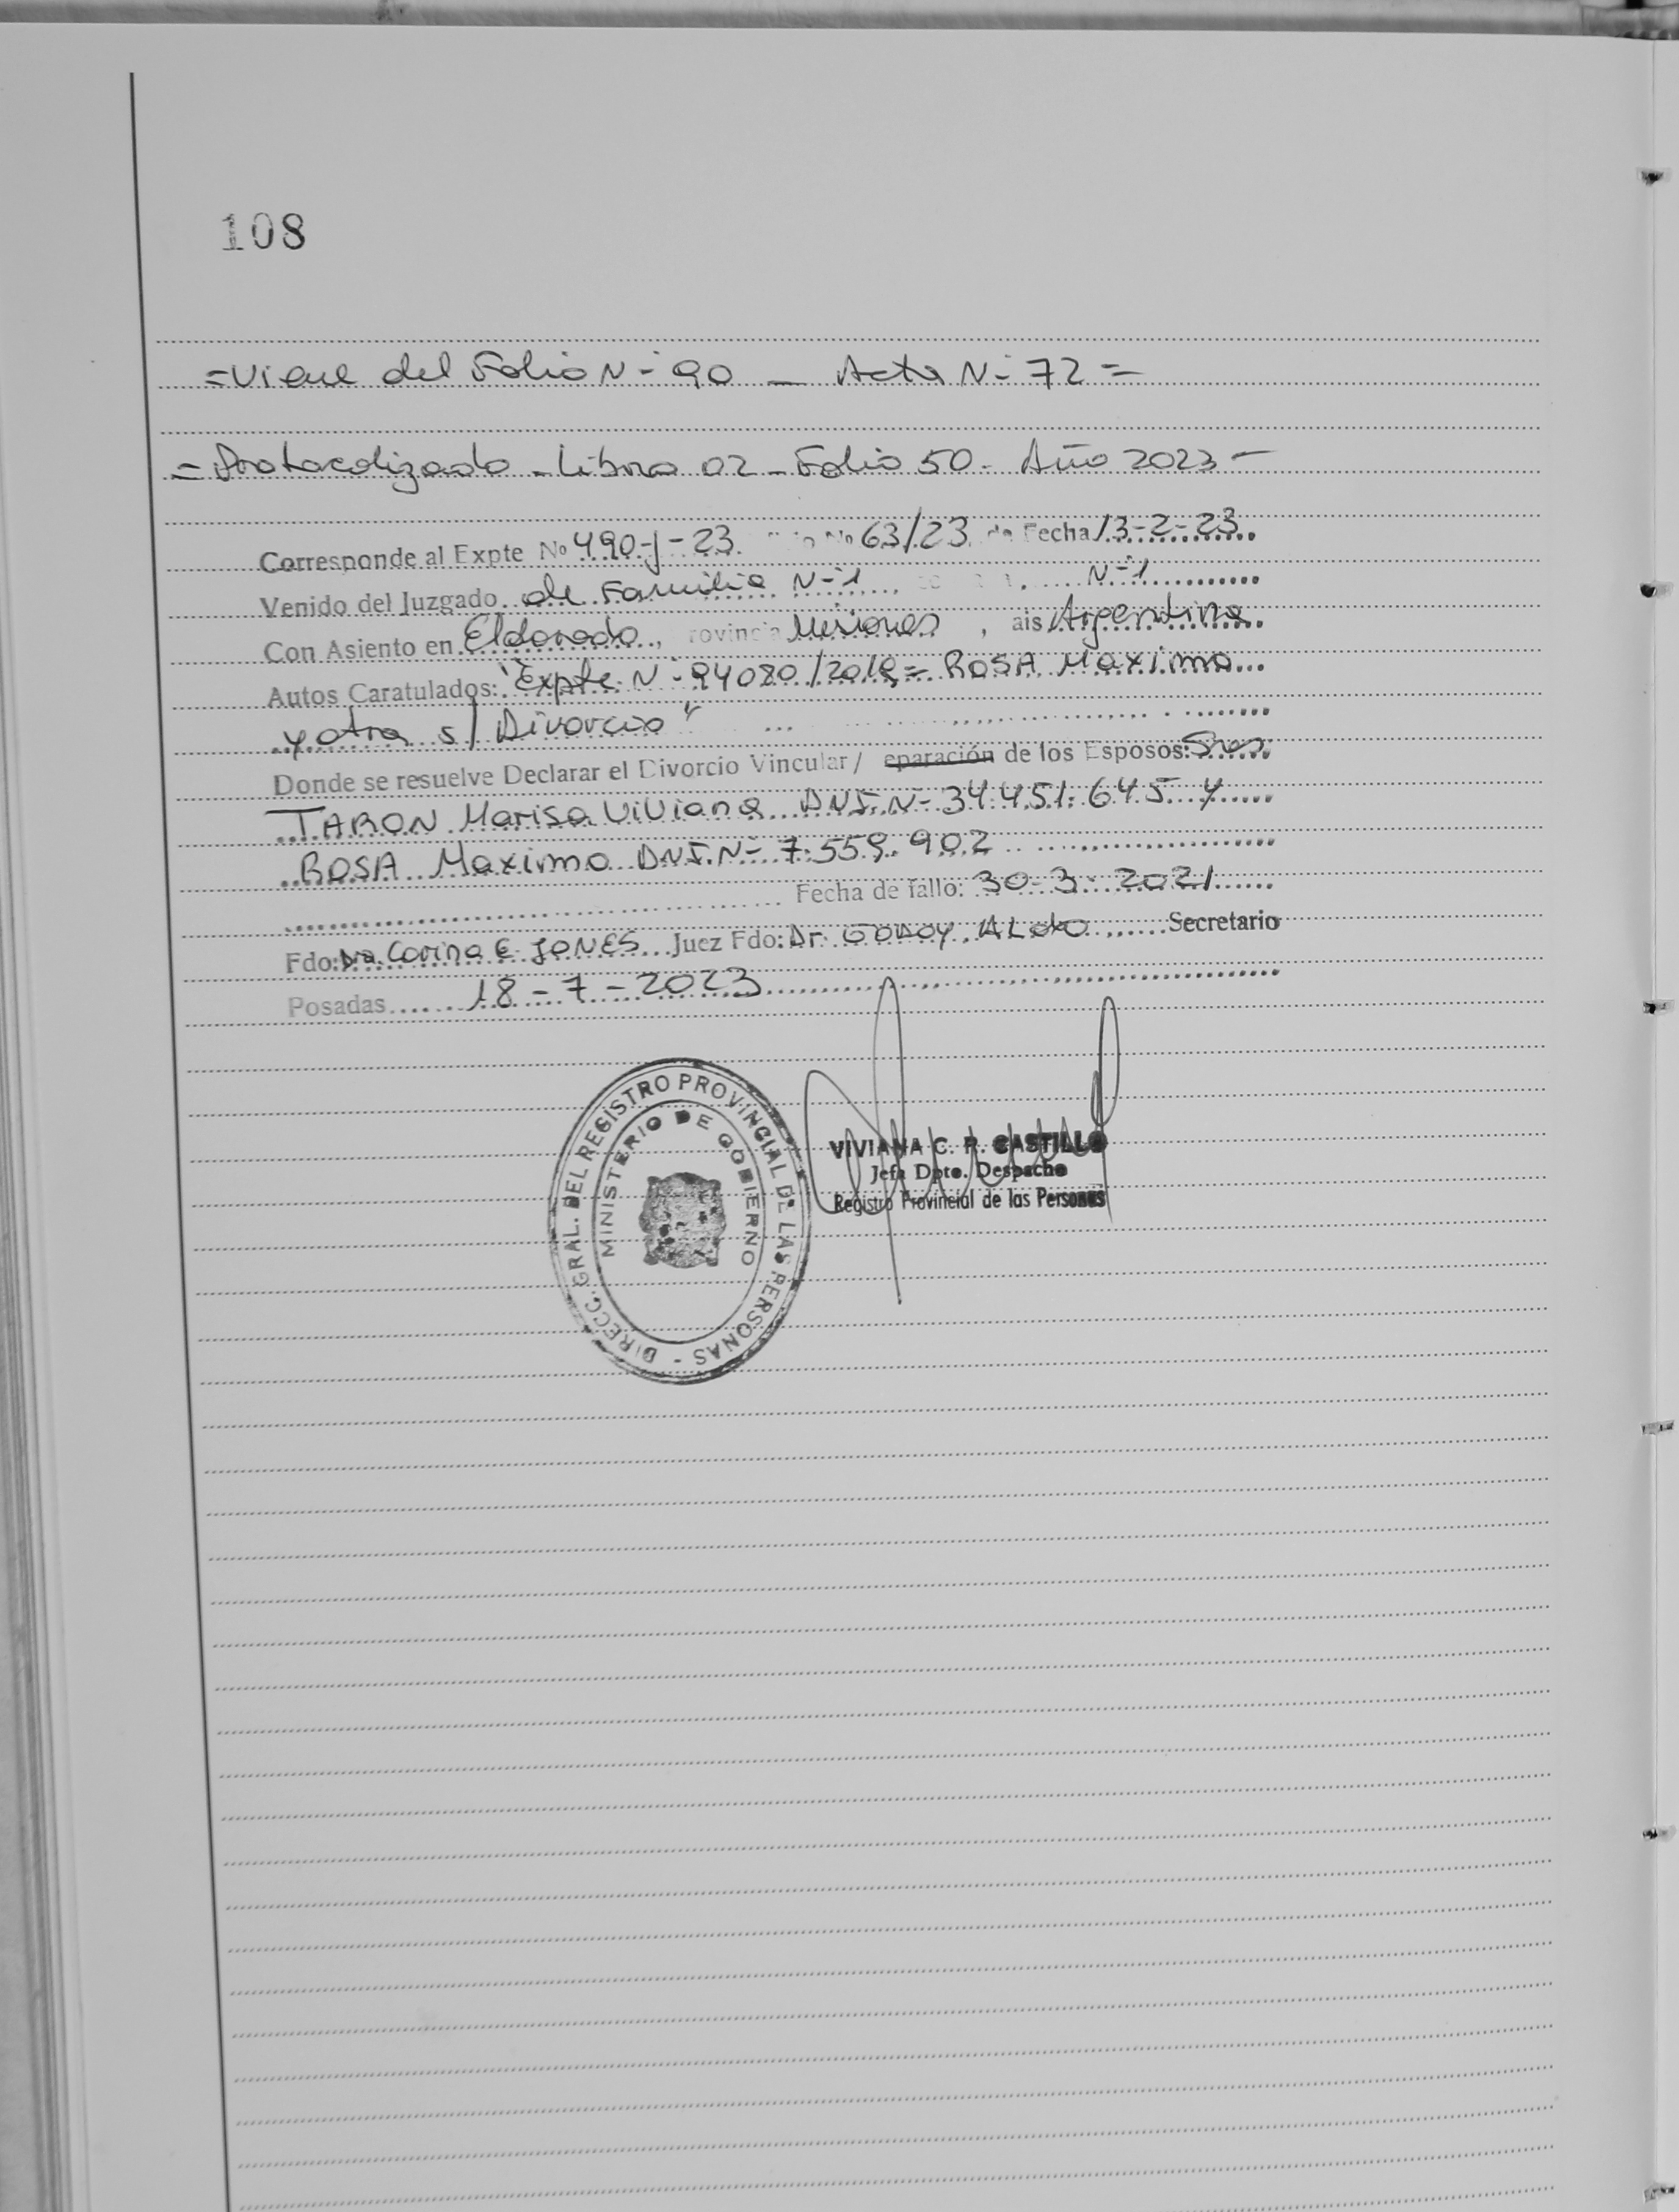 108
=Viene del Folio N- 90 _ Acta N- 72 =
= Protocolizado _ Libro 02 _ Folio 50 - Año 2023 -
Corresponde al Expte Nº 490-J-23 No 63/23 de Fecha 13-2-23
Venido del Juzgado de Familia N-1, N-1
Con Asiento en Eldorado, rovincia Misiones, ais Argentina
Autos Caratulados: "Expte N- 94080/2018= ROSA Maximo
y otra s/ Divorcio"
Donde se resuelve Declarar el Divorcio Vincular/ eparación de los Esposos: Sres
TARON Marisa Viviana DNI. N- 34.451.645 y
ROSA Maximo DNI. N- 7.559.902
Fecha de fallo: 30-3-2021
Fdo: Dra. Corina E JONES Juez Fdo: Dr. GODOY, ALdo Secretario
Posadas 18-7-2023
DIRECC. GRAL. DEL REGISTRO PROVINCIAL DE LAS PERSONAS -
MINISTERIO DE GOBIERNO
VIVIANA C. R. CASTILLO
Jefa Dpto. Despacho
Registro Provincial de las Personas